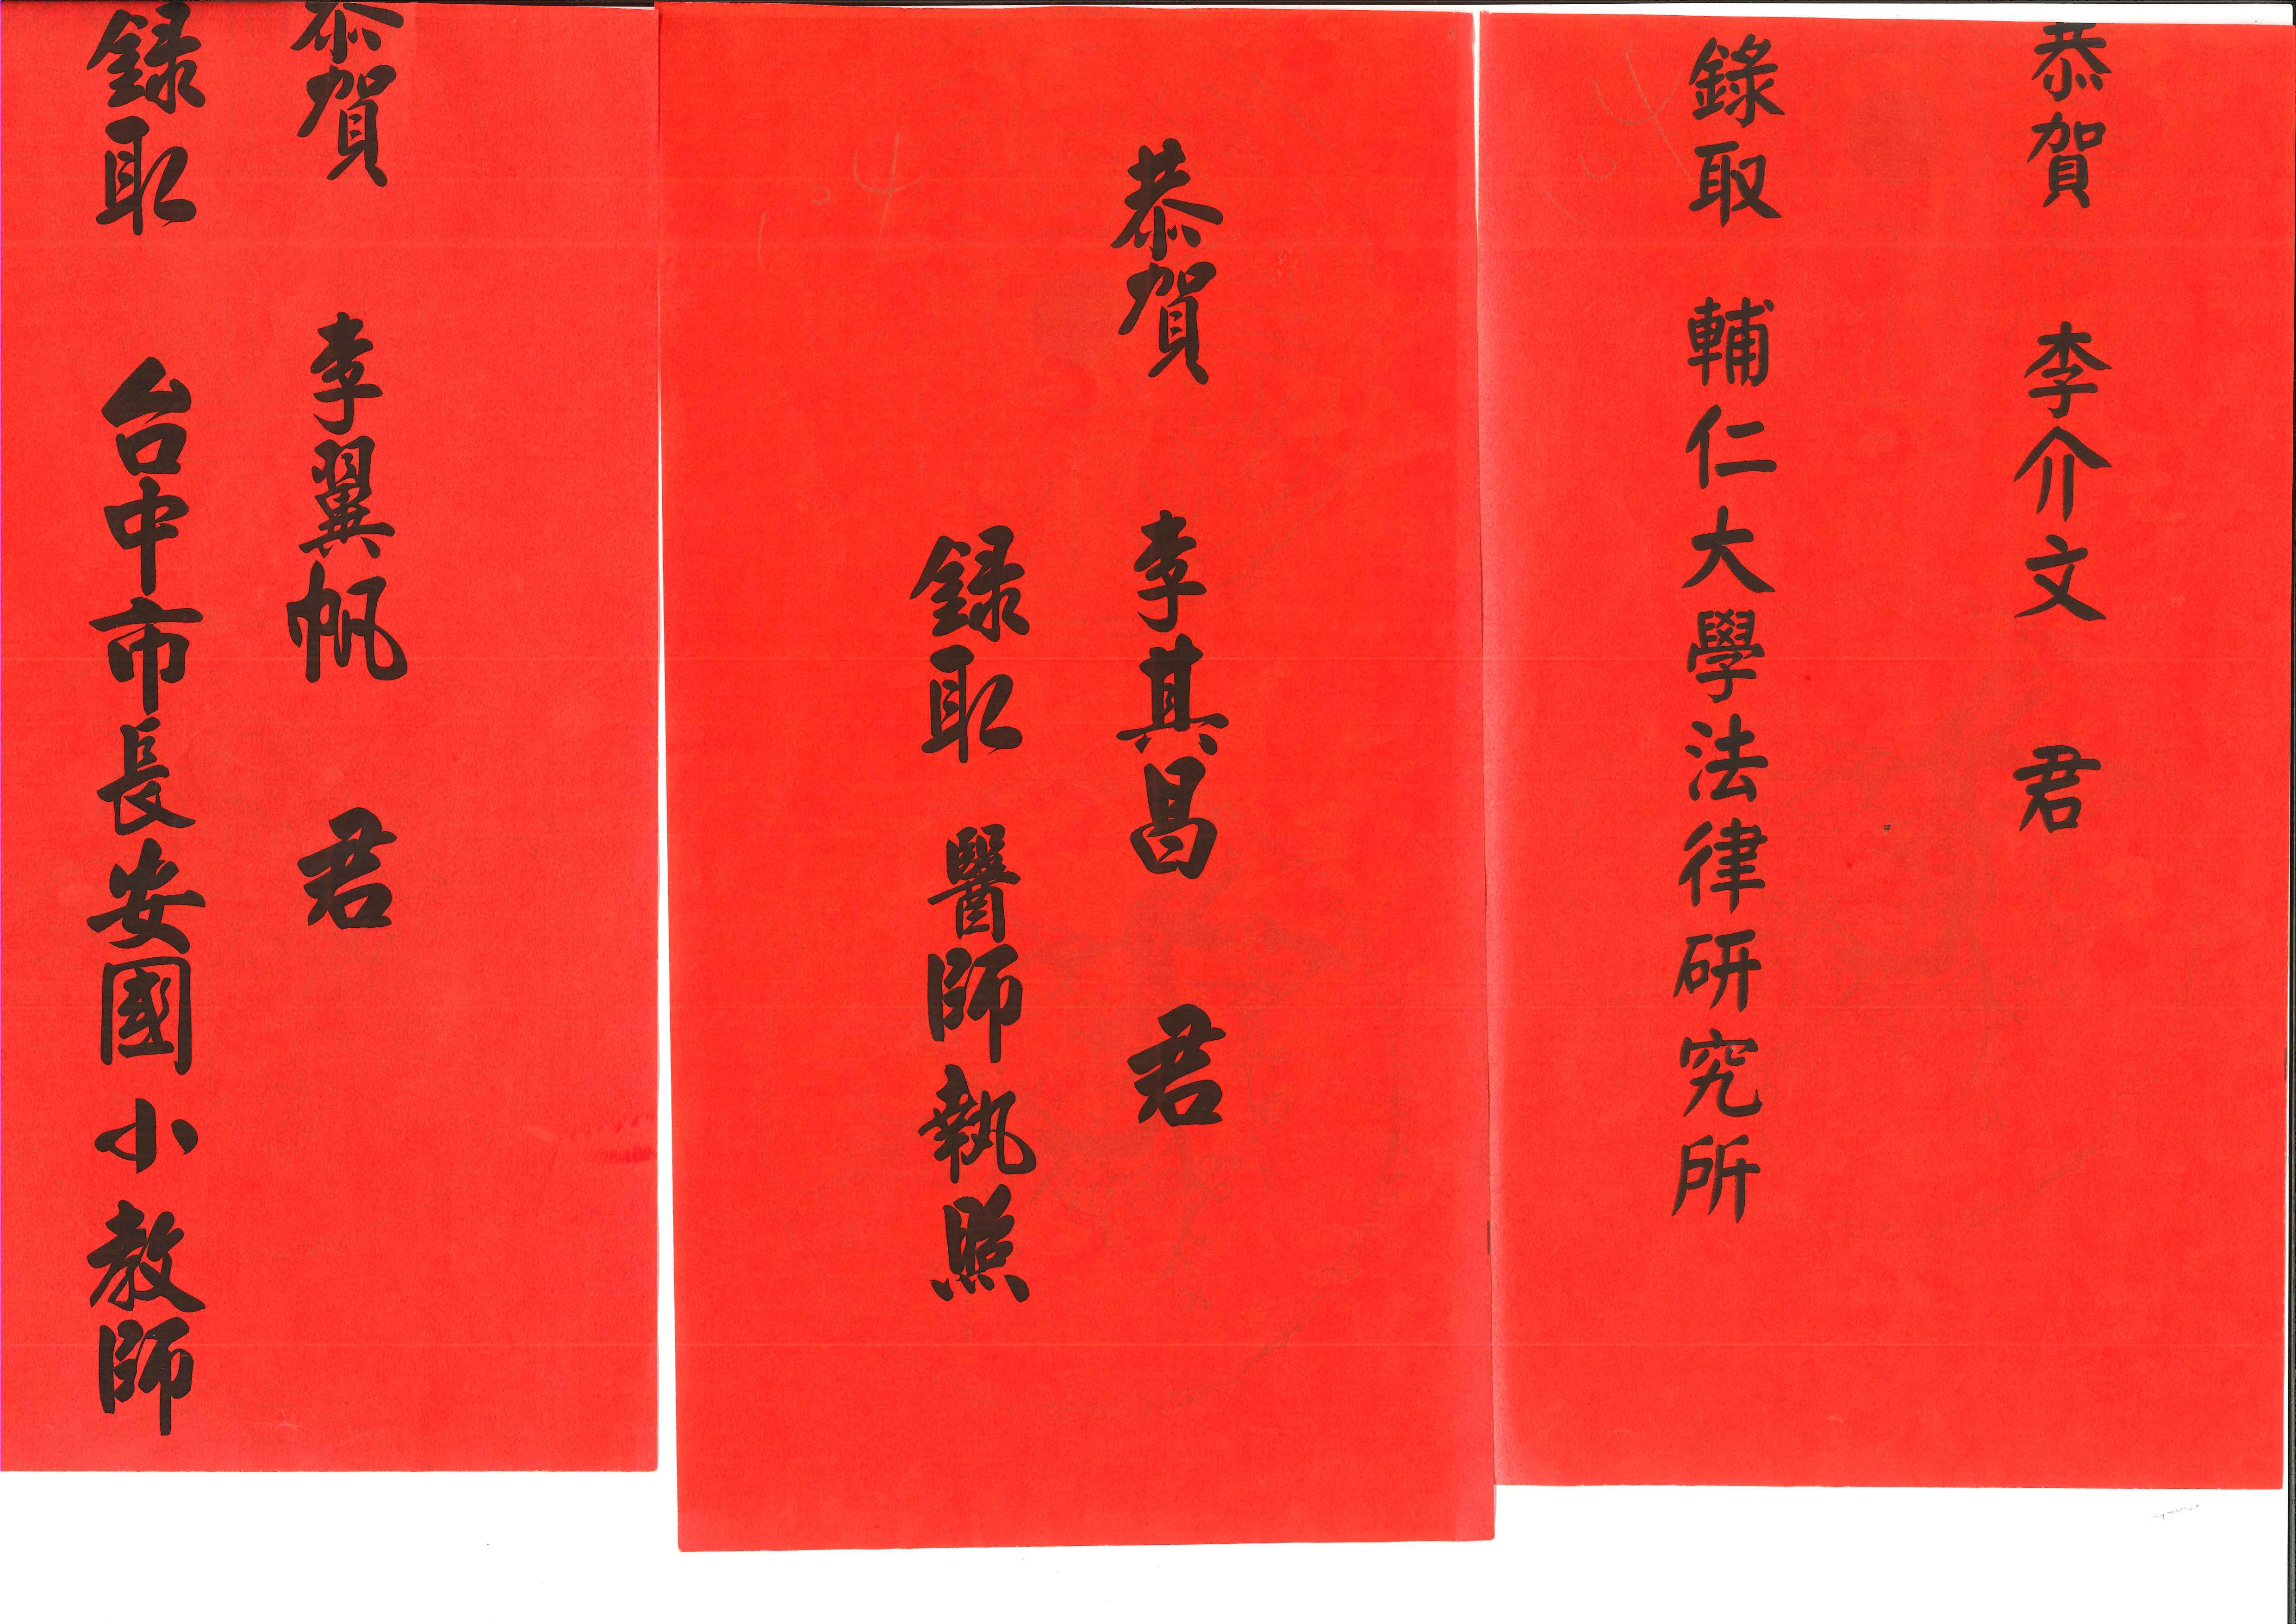 恭賀 李介文 君
錄取 輔仁大學法律研究所
恭賀 李其昌 君
録取 醫師執照
恭賀 李翼帆 君
録取 台中市長安國小教師